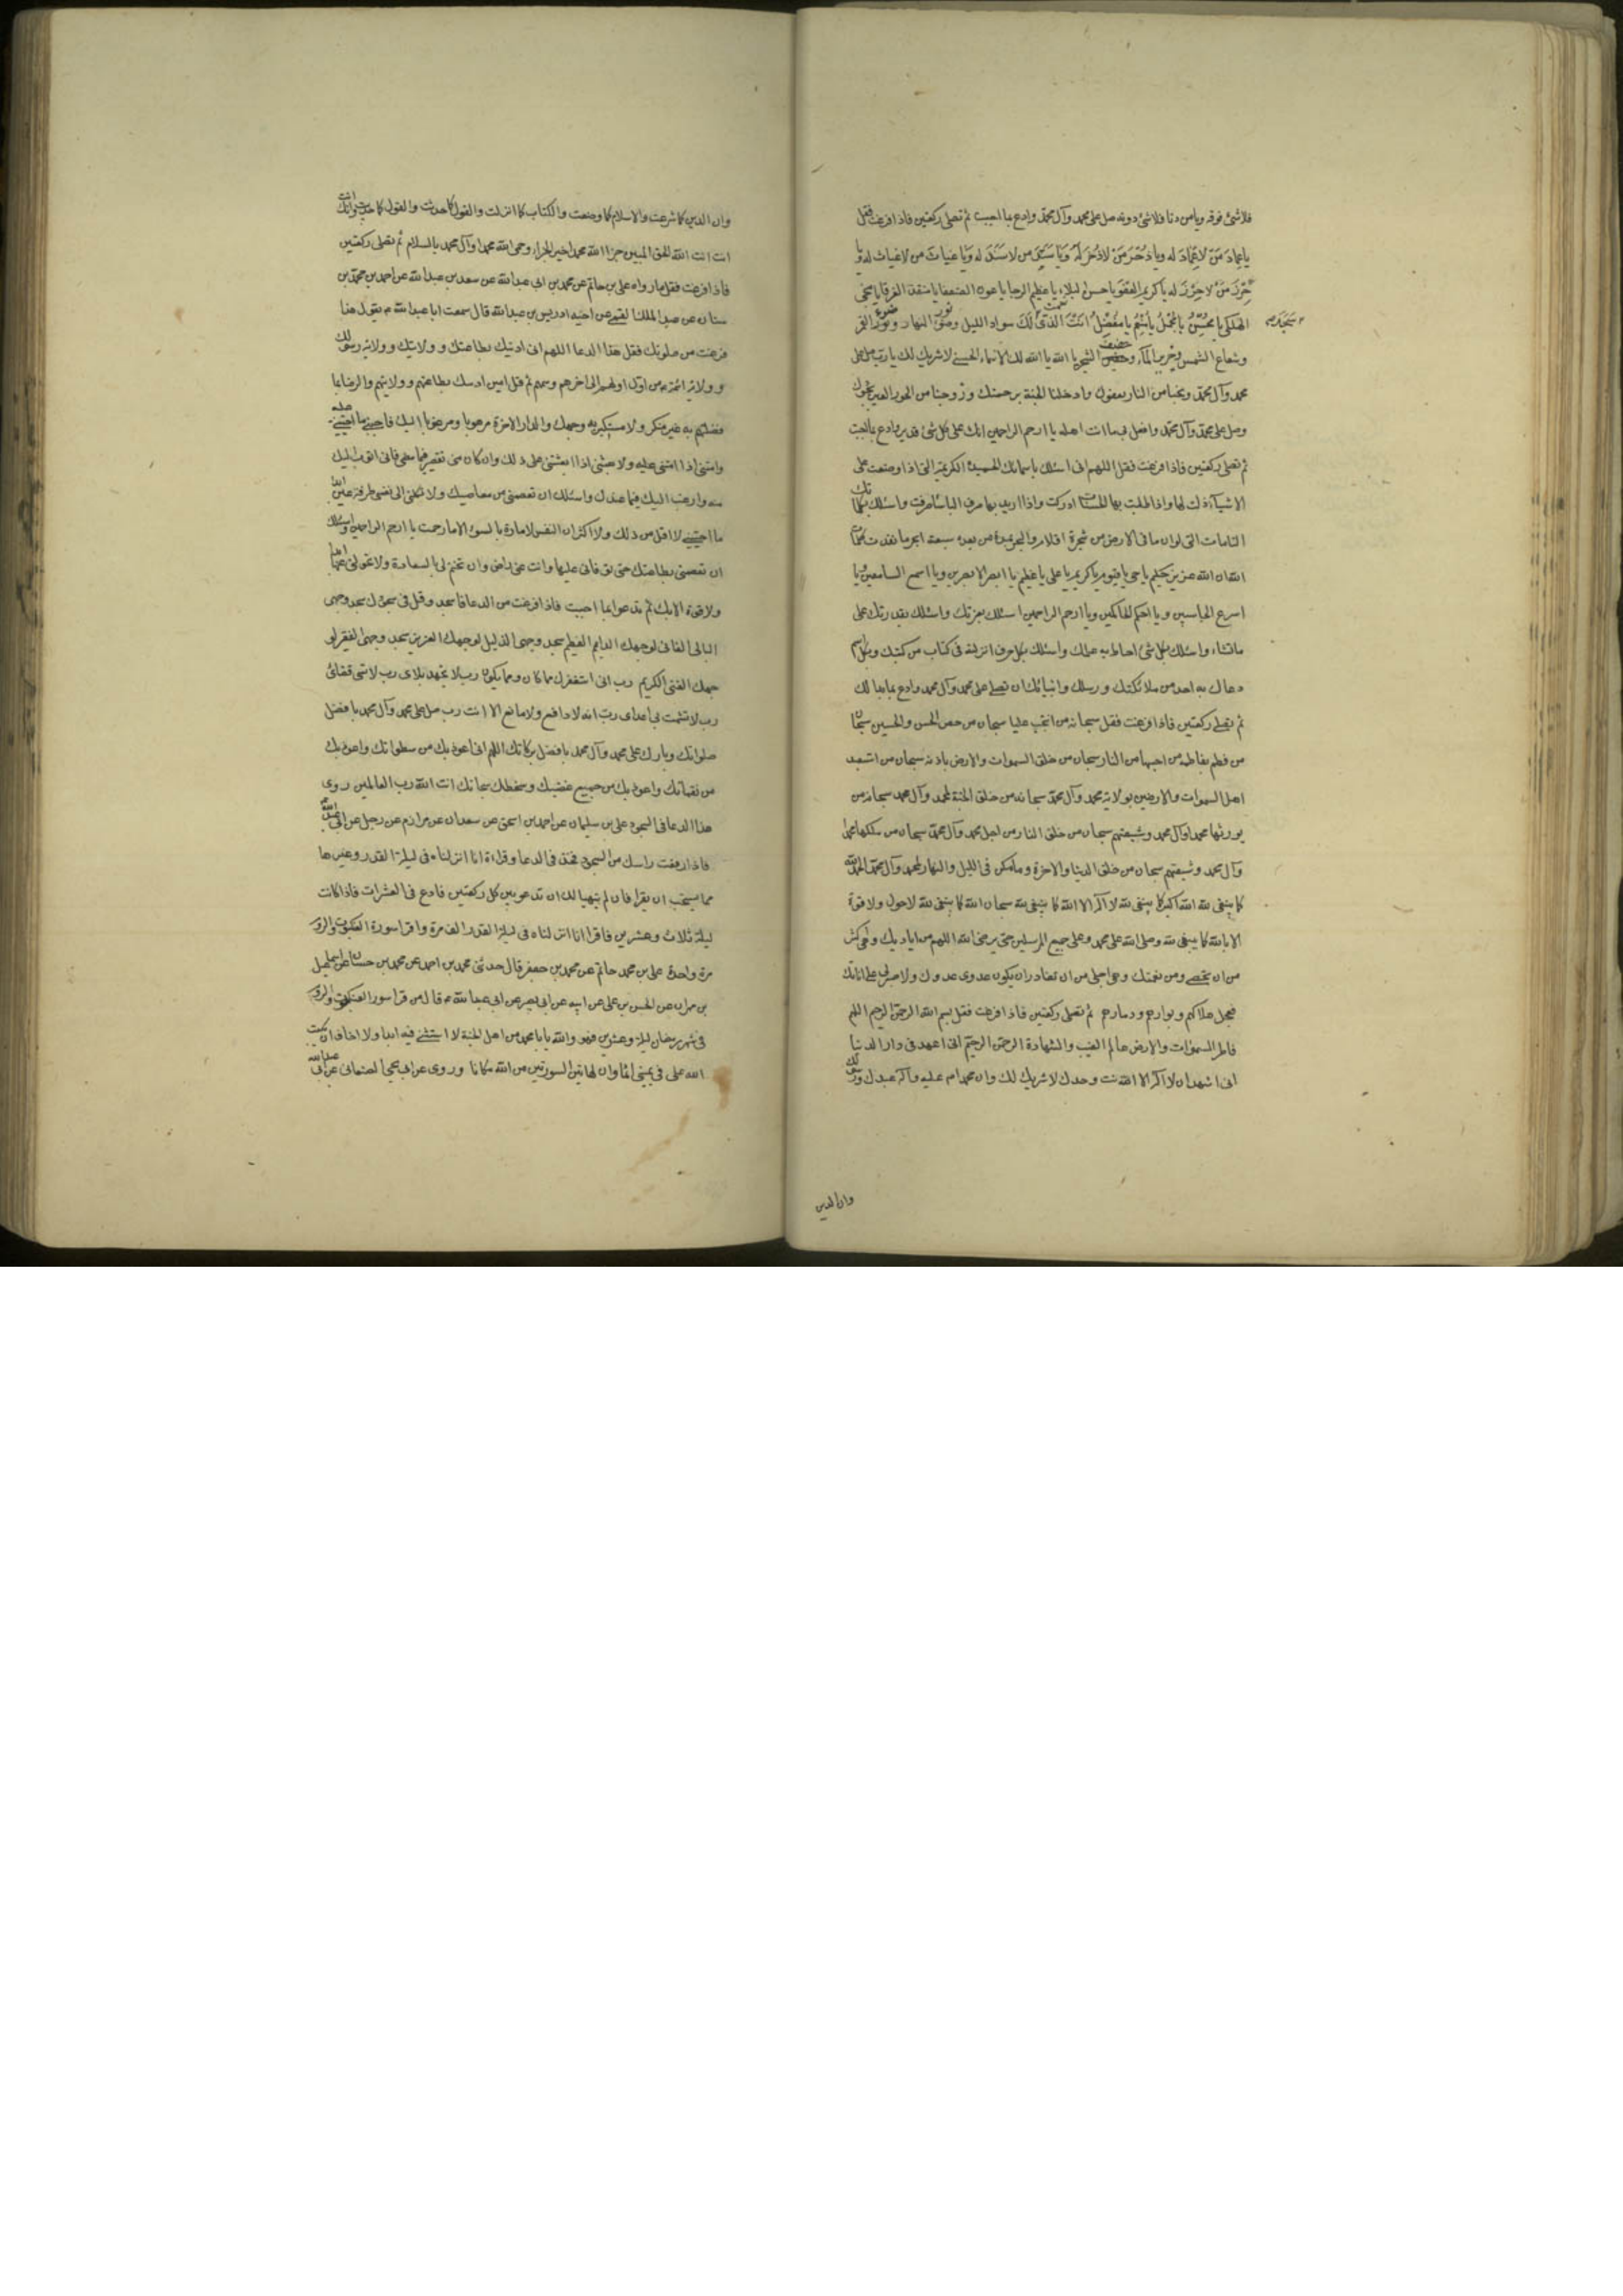 فلا شئ فوقه ويا من دنا فلا شئ دونه صل على محمد وآل محمد وادع بما احببت ثم تصلى ركعتين فاذا فرغت فقل
يا عِمادَ مَنْ لا عِمادَ له ويا ذُخْرَ مَنْ لا ذُخْرَ لَهُ وَيا سَنَدَ من لا سَنَدَ له وَيا غياثَ من لا غياث له ويا
حِرْزَ مَنْ لا حِرْزَ له يا كريم العفو يا حسن البلاء يا عظيم الرجا يا عون الضعفا يا منقذ الغرقا يا منجى
الهلكى يا مُحْسِنُ يا مُجْمِلُ يا مُنْعِمُ يا مُفْضِلُ اَنْتَ الَّذى سَجَدَ لَكَ سواد الليل ونور النهار وضوء القمر
وشعاع الشمس وخرير الماء وحفيف الشجر يا الله يا الله لك الاسماء الحسنى لا شريك لك يا رب صل على
محمد وآل محمد ونجنا من النار بعفوك وادخلنا الجنة برحمتك وزوجنا من الحور العين بجودك
وصل على محمد وآل محمد وافعل بى ما انت اهله يا ارحم الراحمين انك على كل شئ قدير وادع بما احببت
ثم تصلى ركعتين فاذا فرغت فقل اللهم انى اسئلك باسمائك الحميدة الكريمة التى اذا وضعت على
الاشياء ذلت لها واذا طلبت بها الحسنات ادركت واذا اريد بها صرف السيئات صرفت واسئلك بكلماتك
التامات التى لو ان ما فى الارض من شجرة اقلام والبحر يمده من بعده سبعة ابحر ما نفدت كلمات
الله ان الله عزيز حكيم يا حى يا قيوم يا كريم يا على يا عظيم يا ابصر الابصرين ويا اسمع السامعين ويا
اسرع الحاسبين ويا احكم الحاكمين ويا ارحم الراحمين اسئلك بعزتك واسئلك بقدرتك على
ما تشاء واسئلك بكل شئ احاط به علمك واسئلك بكل حرف انزلته فى كتاب من كتبك وبكل اسم
دعاك به احد من ملائكتك ورسلك وانبيائك ان تصلى على محمد وآل محمد وادع بما بدا لك
ثم تصلى ركعتين فاذا فرغت فقل سبحانه من انتجب عليا سبحان من خص الحسن والحسين سبحان
من فطم بفاطمة من احبها من النار سبحان من خلق السموات والارض باذنه سبحان من استعبد
اهل السموات والارضين بولاية محمد وآل محمد سبحانه من خلق الجنة لمحمد وآل محمد سبحانه من
يورثها محمدا وآل محمد وشيعتهم سبحان من خلق النار من اجل محمد وآل محمد سبحان من يملكها محمدا
وآل محمد وشيعتهم سبحان من خلق الدنيا والاخرة وما سكن فى الليل والنهار لمحمد وآل محمد الحمد لله
كما ينبغى لله الله اكبر كما ينبغى لله لا اله الا الله كما ينبغى لله سبحان الله كما ينبغى لله لا حول ولا قوة
الا بالله كما ينبغى لله وصلى الله على محمد وعلى جميع المرسلين حتى يرضى الله اللهم من اياديك وهى اكثر
من ان تحصى ومن نعمك وهى اجل من ان تغادر ان يكون عدوى عدوك ولا صبر لى على اناتك
فعجل هلاكهم وبوارهم ودمارهم ثم تصلى ركعتين فاذا فرغت فقل بسم الله الرحمن الرحيم اللهم
فاطر السموات والارض عالم الغيب والشهادة الرحمن الرحيم انى اعهد فى دار الدنيا
انى اشهد ان لا اله الا الله انت وحدك لا شريك لك وان محمدا عليه وآله عبدك ورسولك
وان الدين
وان الدين كما شرعت والاسلام كما وصفت والكتاب كما انزلت والقول كما حدثت وانك
انت انت الله الحق المبين جزا الله محمدا خير الجزاء وحى الله محمدا وآل محمد بالسلام ثم تصلى ركعتين
فاذا فرغت فقل ما رواه على بن حاتم عن محمد بن ابى عبد الله عن سعد بن عبد الله عن احمد بن محمد بن
سنان عن عبد الملك القمى عن اخيه ادريس بن عبد الله قال سمعت ابا عبد الله يقول هذا
فرغت من صلوتك فقل هذا الدعا اللهم انى ادينك بطاعتك وولايتك وولاية رسولك
وولاية الائمة من اولهم الى اخرهم وسمهم ثم قل امين ادينك بطاعتهم وولايتهم والرضا بما
فضلتهم به غير منكر ولا مستكبر
وامتنى اذا امتنى عليه وابعثنى اذا بعثتنى على ذلك وان كان منى تقصير فيما مضى فانى اتوب اليك
منه وارغب اليك فيما عندك واسئلك ان تعصمنى من معاصيك ولا تكلنى الى نفسى طرفة عين ابدا
ما احييتنى لا اقل من ذلك ولا اكثر ان النفس لامارة بالسوء الا ما رحمت يا ارحم الراحمين واسئلك
ان تعصمنى بطاعتك حتى توفانى عليها وانت عنى راض وان تختم لى بالسعادة ولا تحولنى عنها ابدا
ولا قوة الا بك ثم تدعوا بما احببت فاذا فرغت من الدعا فاسجد وقل فى سجودك سجد وجهى
البالى الفانى لوجهك الدايم العظيم سجد وجهى الذليل لوجهك العزيز سجد وجهى الفقير لو
جهك الغنى الكريم رب انى استغفرك مما كان ومما يكون رب لا تجهد بلائى رب لا تسئ قضائى
رب لا تشمت بى اعدائى رب انه لا دافع ولا مانع الا انت رب صل على محمد وآل محمد بافضل
صلواتك وبارك على محمد وآل محمد بافضل بركاتك اللهم انى اعوذ بك من سطواتك واعوذ بك
من نقماتك واعوذ بك من جميع غضبك وسخطك سبحانك انت الله رب العالمين روى
هذا الدعا فى السجود على بن سليمان عن احمد بن اسحق عن سعدان عن مرازم عن رجل عن ابى عبد الله
فاذا رفعت راسك من السجود فخذ فى الدعا وقراءة انا انزلناه فى ليلة القدر وغيرها
مما يستحب ان يقرا فان لم يتهيا لك ان تدعو بين كل ركعتين فادع فى العشرات فاذا كانت
ليلة ثلاث وعشرين فاقرا انا انزلناه فى ليلة القدر الف مرة واقرا سورة العنكبوت والروم
مرة واحدة على بن محمد حاتم عن محمد بن جعفر قال حدثنى محمد بن احمد عن محمد بن حسان عن اسمعيل
بن مهران عن الحسن بن على عن ابيه عن ابى بصير عن ابى عبد الله قال من قرا سورة العنكبوت والروم
فى شهر رمضان ليلة وعشرين فهو والله يا با محمد من اهل الجنة لا استثنى فيه ابدا ولا اخاف ان يكتب
الله على فى يمينى اثما وان لهاتين السورتين من الله مكانا وروى عن ابى يحيى الصنعانى عن ابى عبد الله